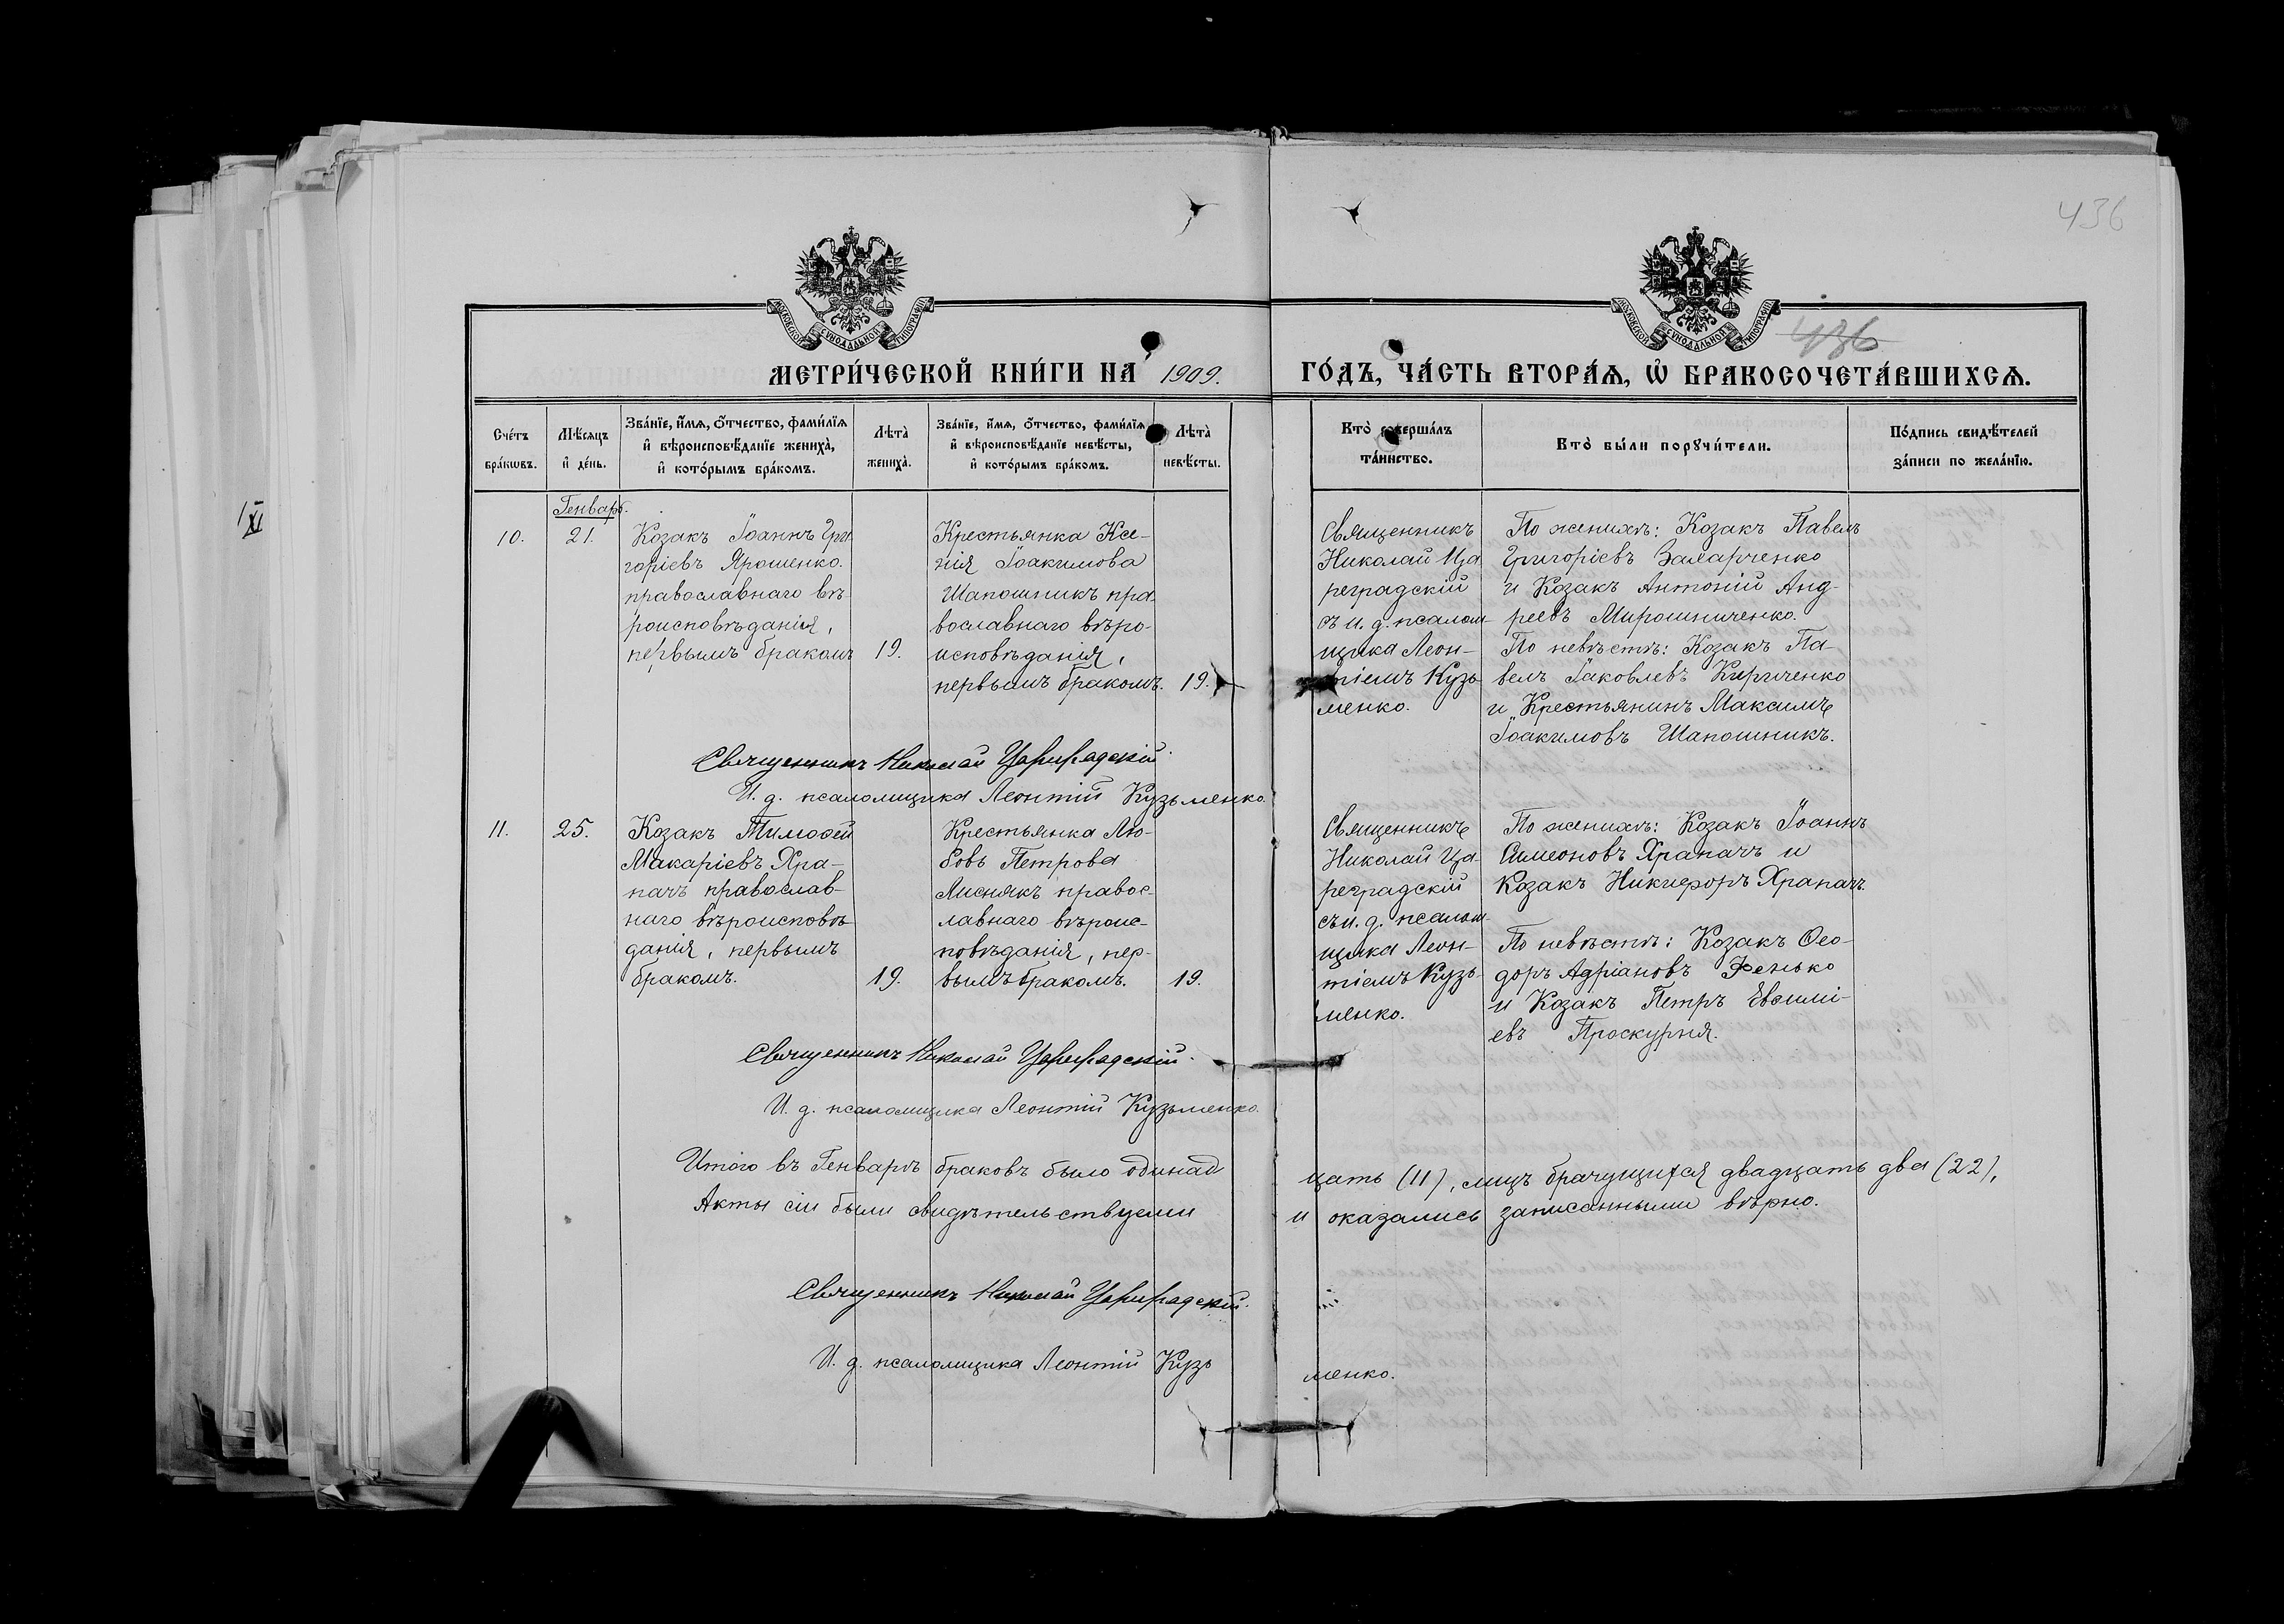 436
436
МОСКОВСКОЙ СУНОДАЛЬНОЙ ТИПОГРАФІИ
МОСКОВСКОЙ СУНОДАЛЬНОЙ ТИПОГРАФІИ
МЕТРИ́ЧЕСКОЙ КНИ́ГИ НА 1909. ГО́ДЪ, ЧА́СТЬ ВТОРА́Ѧ, Ѽ БРАКОСОЧЕТА́ВШИХСѦ.
Сче́тъ
бра́кѡвъ.
Мѣ́сѧцъ
и҆ де́нь.
Зва́нїе, и҆́мѧ, ѻ҆́тчество, фами́лїѧ
и҆ вѣроисповѣ́данїе жениха̀,
и҆ кото́рымъ бра́комъ.
Лѣ́та̀
жениха̀.
Зва́нїе, и҆́мѧ, ѻ҆́тчество, фами́лїѧ
и҆ вѣроисповѣ́данїе невѣ́сты,
и҆ кото́рымъ бра́комъ.
Лѣ́та̀
невѣ́сты.
Кто̀ соверша́лъ
та́инство.
Кто̀ бы́ли порꙋчи́тели.
По́дпись свидѣ́телей
за́писи по жела́нїю.
Генварь.
10.
21.
Козакъ Іоаннъ Гри-
горіевъ Ярошенко.
православнаго вѣ-
роисповѣданія,
первымъ бракомъ
19.
Крестьянка Ксе-
нія Іоакимова
Шапошникъ пра-
вославнаго вѣро-
исповѣданія,
первымъ бракомъ.
19.
Священникъ
Николай Ца-
реградскій
съ и. д. псалом-
щика Леон-
тіемъ Кузь-
менко.
По женихѣ: Козакъ Павелъ
Григоріевъ Захарченко
и Козакъ Антоній Анд-
реевъ Мирошниченко.
По невѣстѣ: Козакъ Па-
велъ Іаковлевъ Кириченко
и Крестьянинъ Максимъ
Іоакимовъ Шапошникъ.
Священникъ Николай Цареградскій.
И. д. псаломщика Леонтій Кузьменко.
11.
25.
Козакъ Тимоѳей
Макаріевъ Хра-
пачъ православ-
наго вѣроисповѣ-
данія, первымъ
бракомъ.
19.
Крестьянка Лю-
бовь Петрова
Лиснякъ правос-
лавнаго вѣроис-
повѣданія, пер-
вымъ бракомъ.
19.
Священникъ
Николай Ца-
реградскій
съ и. д. псалом-
щика Леон-
тіемъ Кузь-
менко.
По женихѣ: Козакъ Іоаннъ
Симеоновъ Храпачъ и
Козакъ Никифоръ Храпачъ.
По невѣстѣ: Козакъ Ѳео-
доръ Адріановъ Фенько
и Козакъ Петръ Евѳимі-
евъ Проскурня.
Священникъ Николай Цареградскій.
И. д. псаломщика Леонтій Кузьменко.
Итого въ Генварѣ браковъ было одинадцать (11), лицъ брачущихся двадцать два (22),
Акты сіи были свидѣтельствуеми и оказались записанными вѣрно.
Священникъ Николай Цареградскій.
И. д. псаломщика Леонтій Кузьменко.